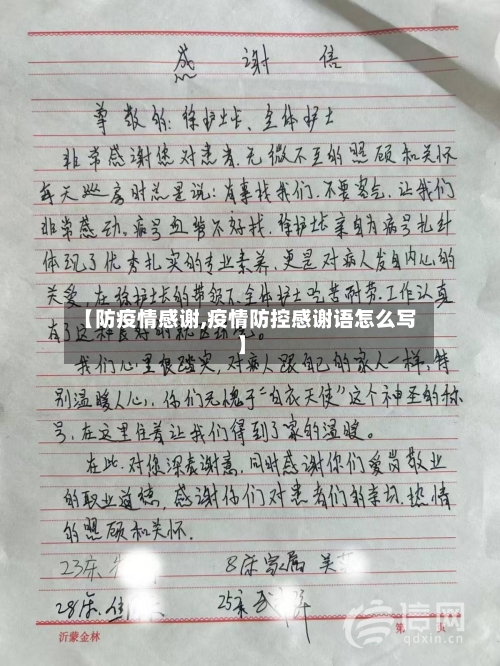 感谢信
尊敬的:徐护士长、全体护士
非常感谢您对患者无微不至的照顾和关怀
每天巡房时总是说:有事找我们.不要客气.让我们
非常感动.病号血管不好找.徐护士长亲自为病号扎针
体现了优秀扎实的专业素养.更是对病人发自内心的
关爱.在徐护士长的带领下.全体护士吃苦耐劳.工作认真
【防疫情感谢,疫情防控感谢语怎么写
】
有了这种良好的
我们心里很踏实,对病人跟自己的家人一样,特
别温暖人心,你们无愧于“白衣天使”这个神圣的称
号,在这里住着让我们得到了家的温暖。
在此.对你深表谢意,同时感谢你们爱岗敬业
的职业道德,感谢你们对患者们的亲切.热情
的照顾和关怀.
23床 8床家属 吴
28床. 25床
沂蒙金林 第 页
信网
qdxin.cn